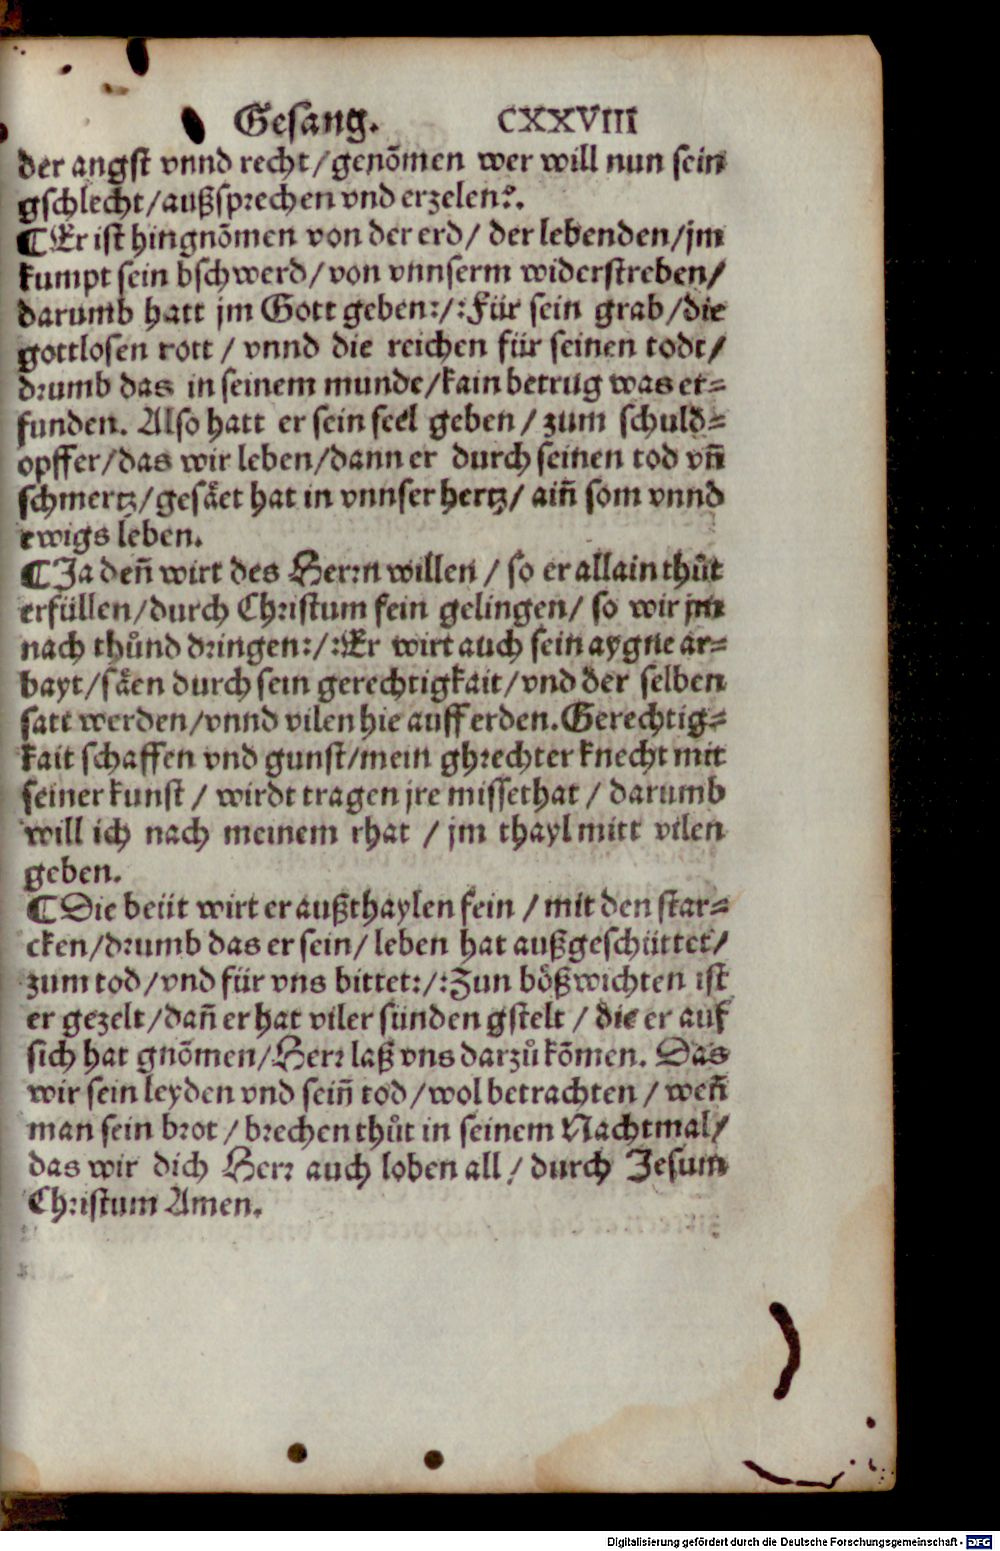 Gesang. CXXVIII
der angst vnnd recht/genõmen wer will nun sein
gschlecht/außsprechen vnd erzelen?.
¶Er ist hingnõmen von der erd/ der lebenden/jm
kumpt sein bschwerd/von vnnserm widerstreben/
darumb hatt jm Gott geben:/:Für sein grab/die
gottlosen rott / vnnd die reichen für seinen todt/
drumb das in seinem munde/kain betrug was er-
funden. Also hatt er sein seel geben / zum schuld-
opffer/das wir leben/dann er durch seinen tod vñ
schmertz/gesäet hat in vnnser hertz/ aiñ som vnnd
ewigs leben.
¶Ja deñ wirt des Herrn willen / so er allain thůt
erfüllen/durch Christum fein gelingen/ so wir jm
nach thůnd dringen:/:Er wirt auch sein aygne ar-
bayt/säen durch sein gerechtigkait/vnd der selben
satt werden/vnnd vilen hie auff erden.Gerechtig-
kait schaffen vnd gunst/mein ghrechter knecht mit
seiner kunst / wirdt tragen jre missethat / darumb
will ich nach meinem rhat / jm thayl mitt vilen
geben.
¶Die beüt wirt er außthaylen fein / mit den star-
cken/drumb das er sein/ leben hat außgeschüttet/
zum tod/vnd für vns bittet:/:Zun bößwichten ist
er gezelt/dañ er hat viler sünden gstelt / die er auf
sich hat gnõmen/Herr laß vns darzů kõmen. Das
wir sein leyden vnd seiñ tod/wol betrachten / weñ
man sein brot / brechen thůt in seinem Nachtmal/
das wir dich Herr auch loben all / durch Jesum
Christum Amen.
Digitalisierung gefördert durch die Deutsche Forschungsgemeinschaft - DFG